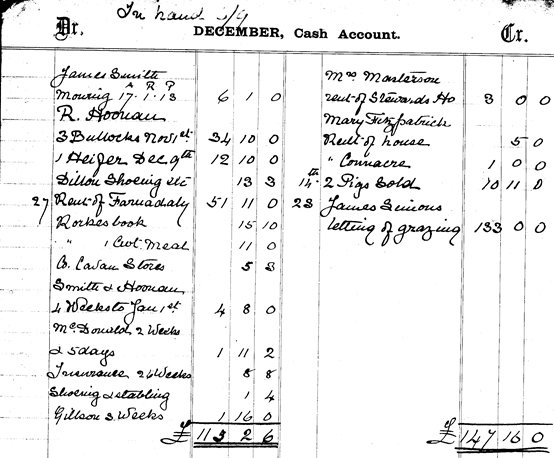 In hand 5/9
Dr.
DECEMBER, Cash Account.
Cr.
James Smith
A R P
Mowing 17·1·13 6 1 0
R. Hoonan
3 Bullocks Nov 1st 34 10 0
1 Heifer Dec 9th 12 10 0
Dillon Shoeing etc 13 3
27 Rent of Farnadaly 51 11 0
Rorkes book 15 10
" 1 Cwt. Meal 11 0
B. Cavan Stores 5 3
Smith & Hoonan
4 Weeks to Jan 1st 4 8 0
McDonald 2 Weeks
& 5 days 1 11 2
Insurance 26 Weeks 8 8
Shoeing & stabling 1 4
Gillson 3 Weeks 1 16 0
£ 115 2 6
Mrs Masterson
rent of Stewards Ho 3 0 0
Mary Fitzpatrick
Rent of house 5 0
" Connacre 1 0 0
14th 2 Pigs Sold 10 11 0
23 James Simons
letting of grazing 133 0 0
£ 147 16 0